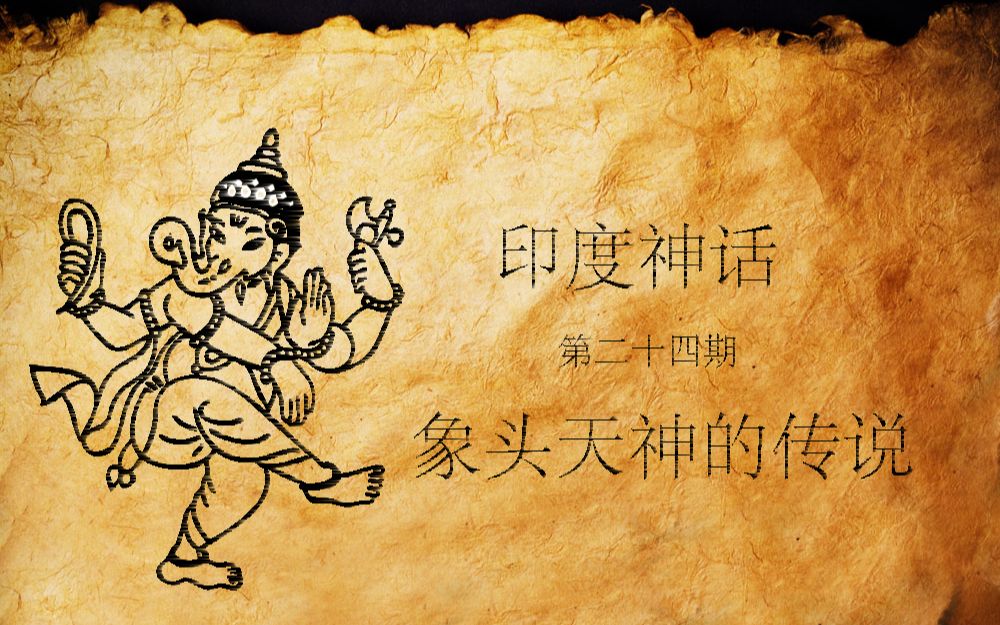 印度神话
第二十四期
象头天神的传说